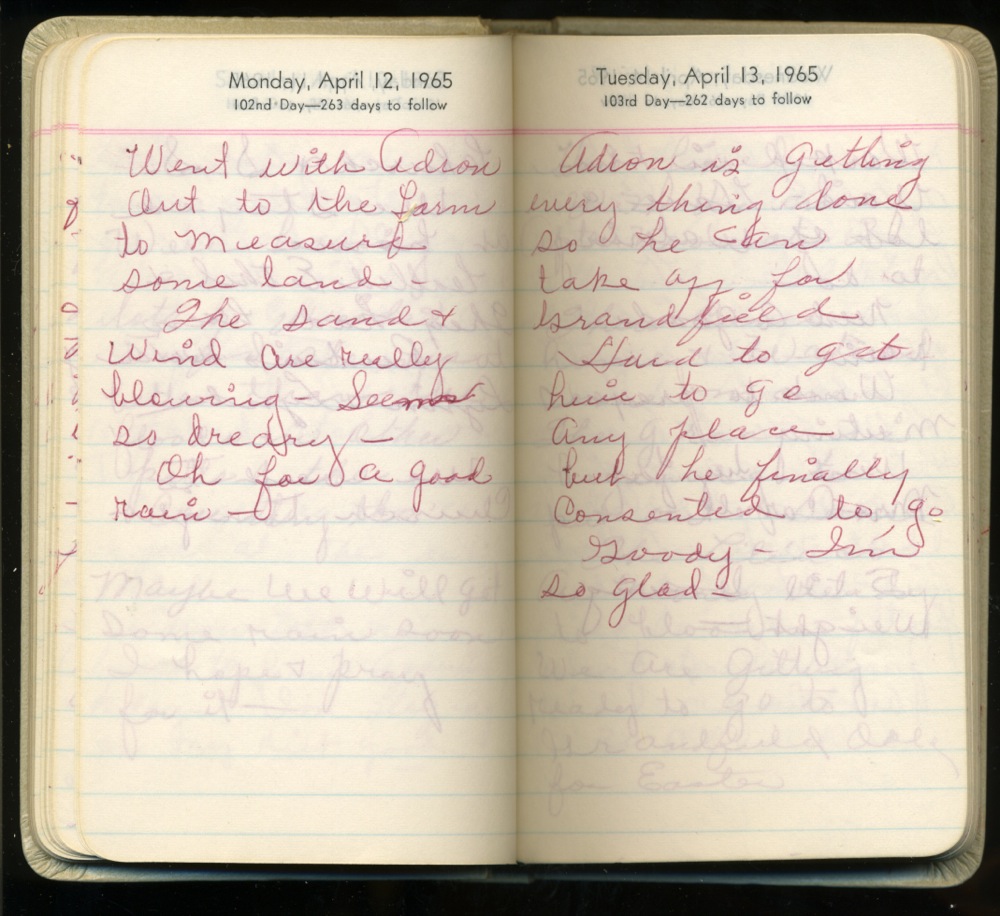 Monday, April 12, 1965
102nd Day—263 days to follow
Went with Adron
Out to the Farm
to measure
some land -
The sand &
Wind are really
blowing - Seems
so dreary -
Oh for a good
rain -
Maybe we will get
some rain soon
I hope & pray
for it -
Tuesday, April 13, 1965
103rd Day—262 days to follow
Adron is getting
every thing done
so he can
take off for
Grandfield
Hard to get
him to go
any place
but he finally
Consented to go
Goody - I'm
so glad -
We are getting
ready to go to
for Easter